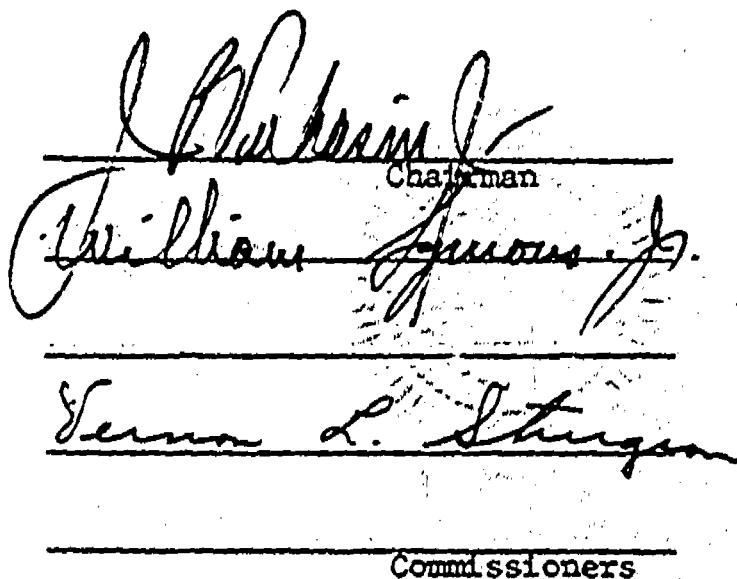 Chairman
William Symons. Jr.
Vernon L. Sturgeon
Commissioners